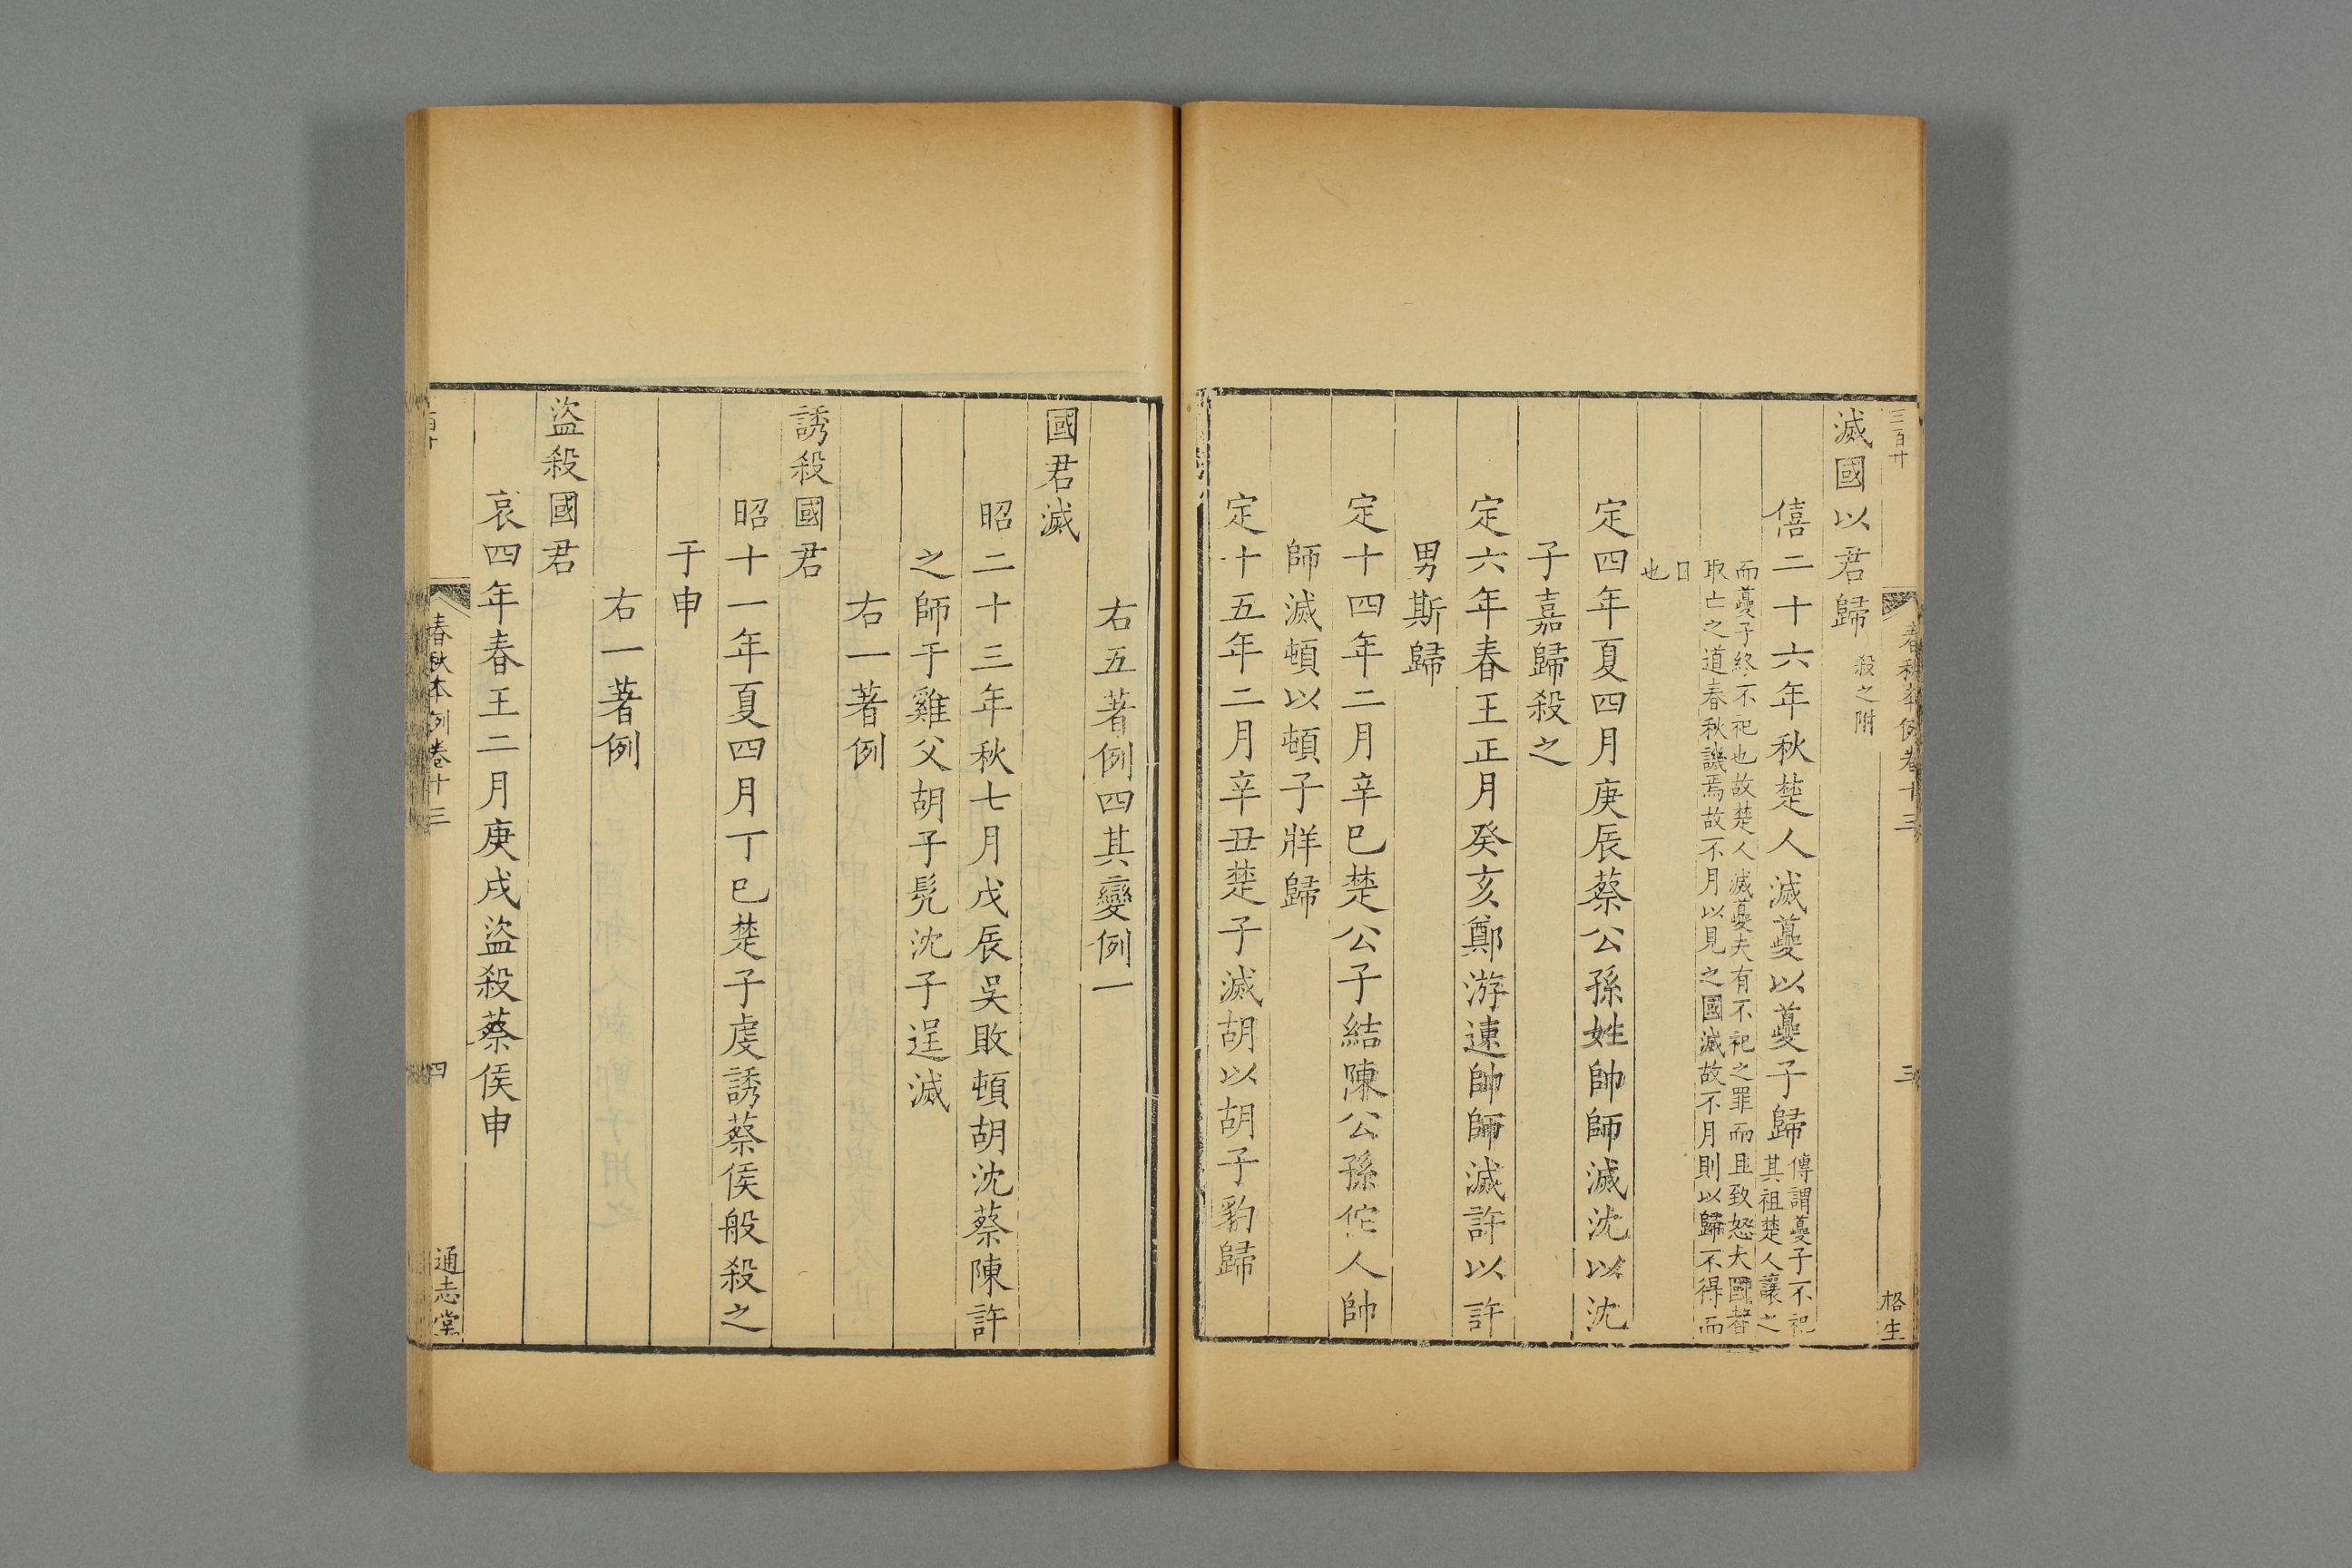 三百廿
春秋本例卷十三
三
格生
滅國以君歸 殺之附
僖二十六年秋楚人滅夔以夔子歸
傳謂夔子不祀
其祖楚人讓之
而夔子終不祀也故楚人滅夔夫有不祀之罪而且致怒大國者
取亡之道春秋譏焉故不月以見之國滅故不月則以歸不得而
日
也
定四年夏四月庚辰蔡公孫姓帥師滅沈以沈
子嘉歸殺之
定六年春王正月癸亥鄭游速帥師滅許以許
男斯歸
定十四年二月辛巳楚公子結陳公孫佗人帥
師滅頓以頓子牂歸
定十五年二月辛丑楚子滅胡以胡子豹歸
右五著例四其變例一
國君滅
昭二十三年秋七月戊辰吳敗頓胡沈蔡陳許
之師于雞父胡子髠沈子逞滅
右一著例
誘殺國君
昭十一年夏四月丁巳楚子虔誘蔡侯般殺之
于申
右一著例
盜殺國君
哀四年春王二月庚戌盜殺蔡侯申
春秋本例卷十三
四
通志堂